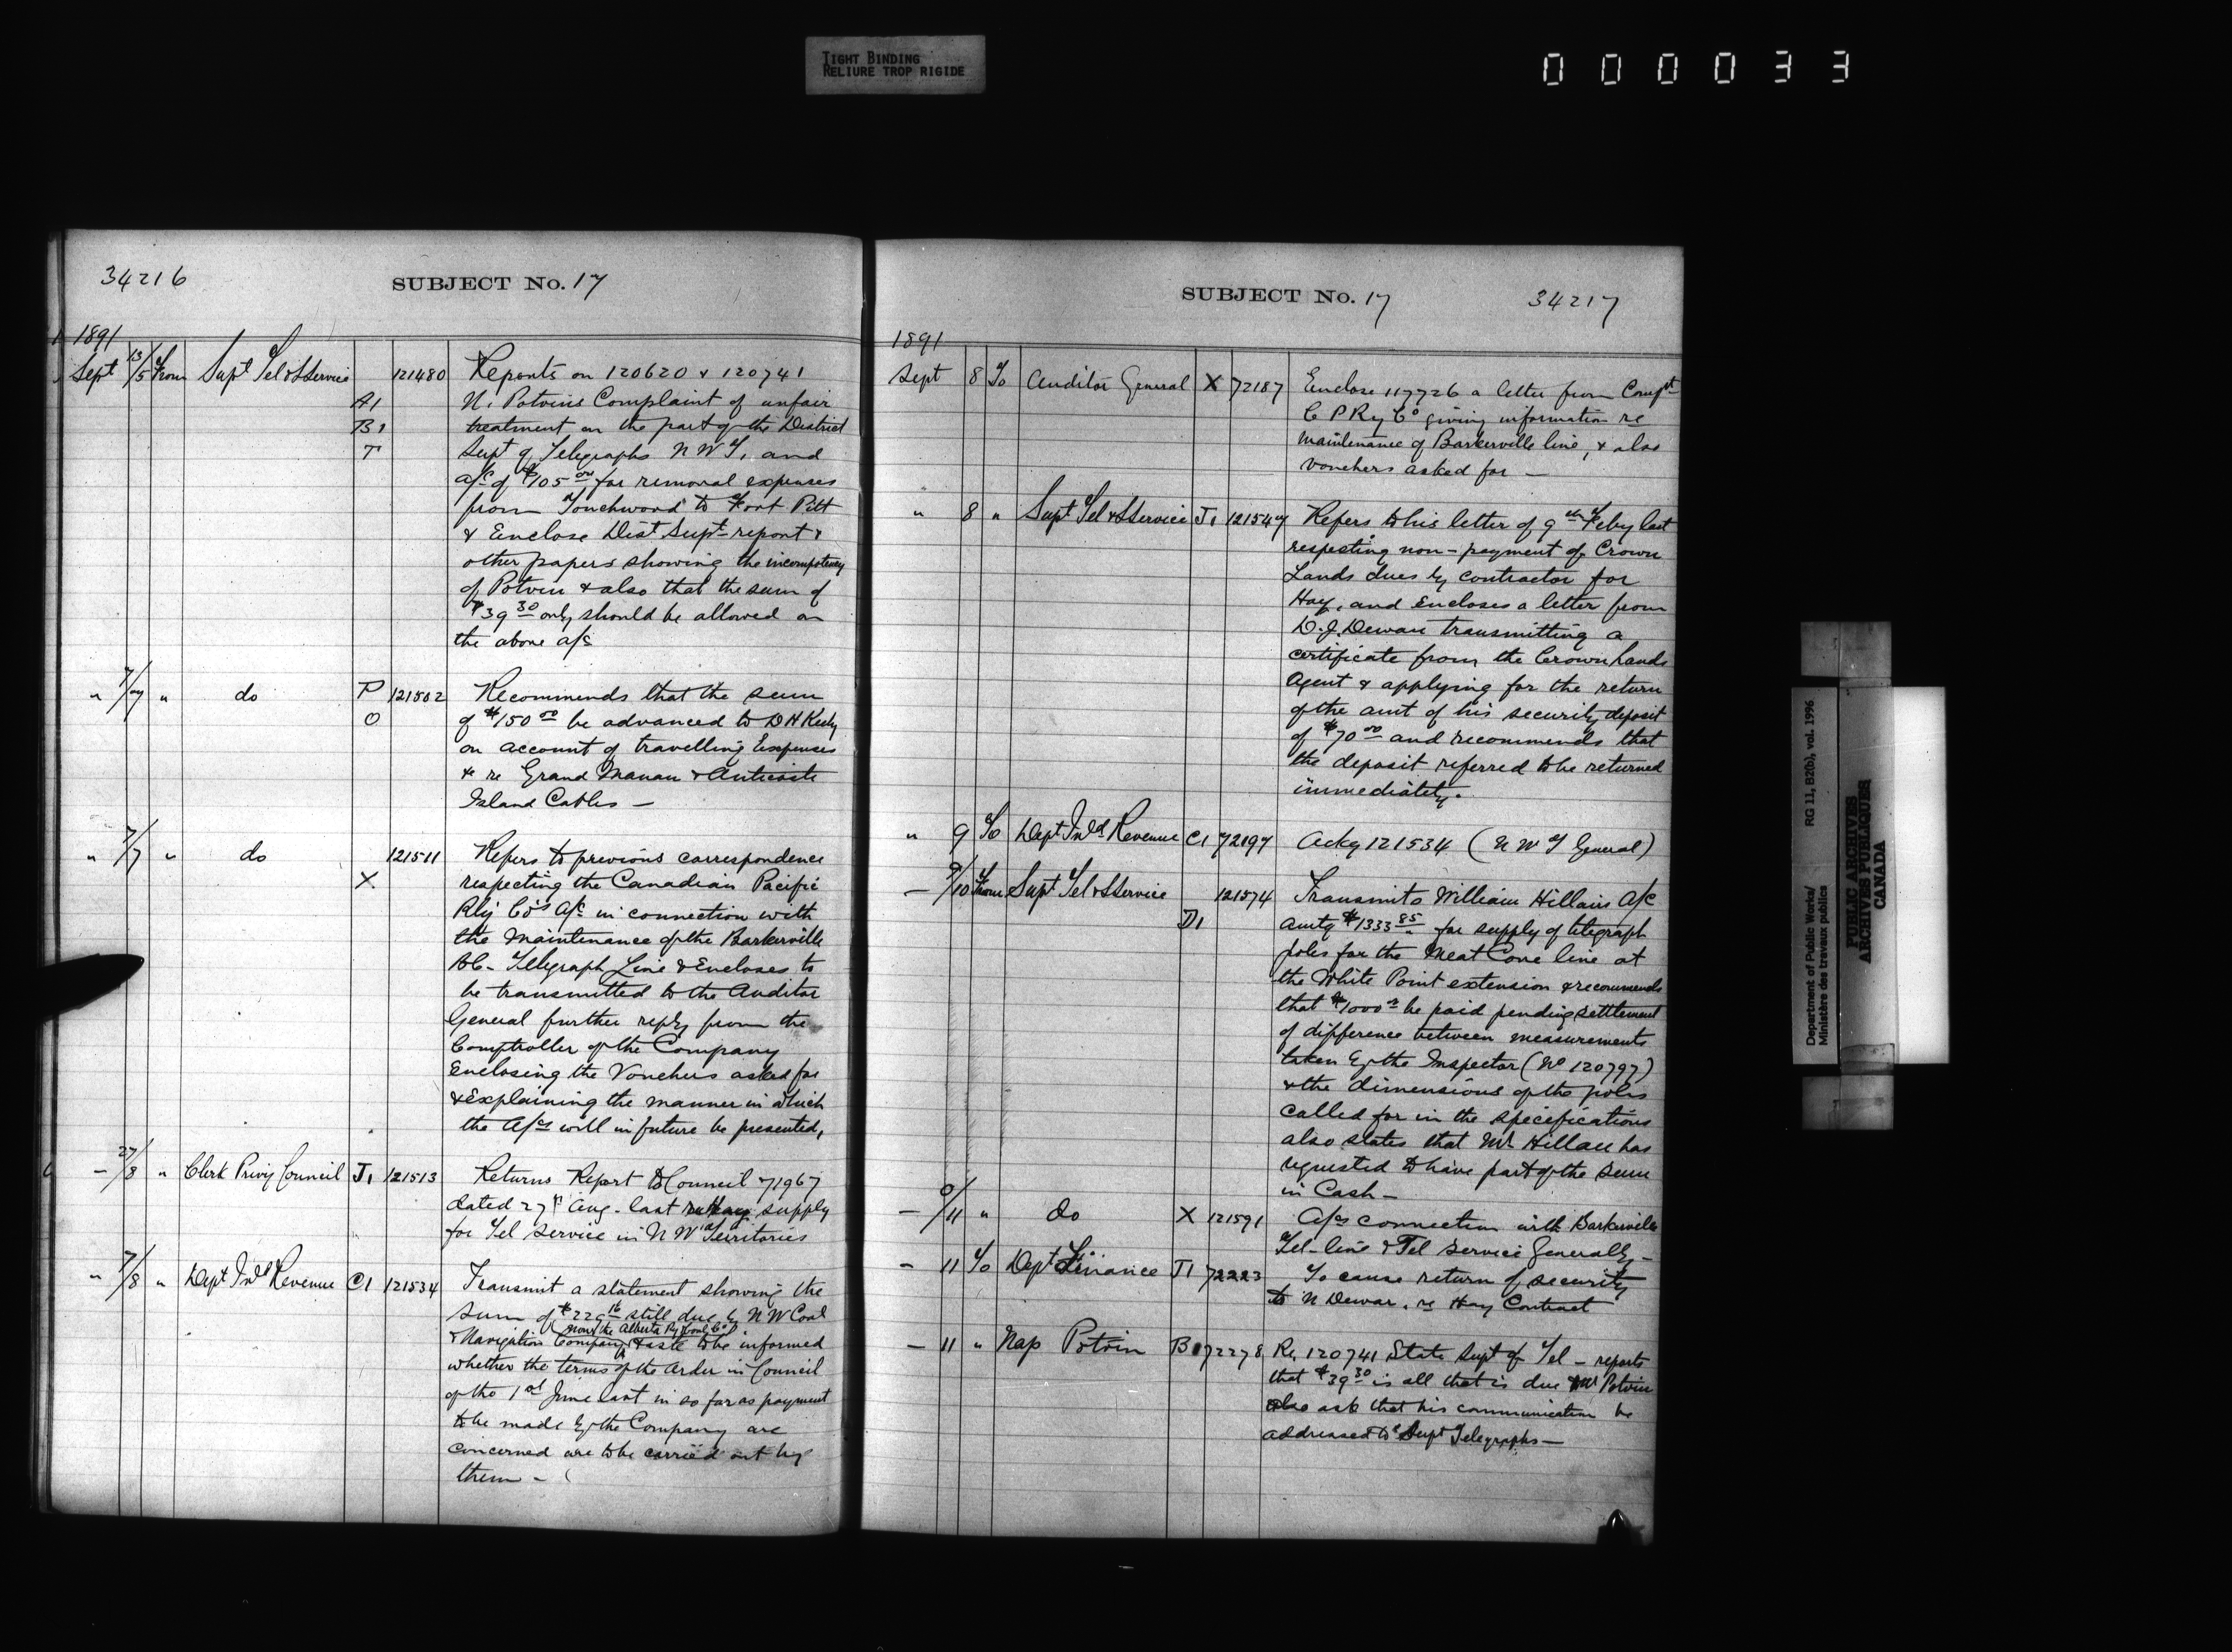 TIGHT BINDING
RELIURE TROP RIGIDE
000033
34216
SUBJECT No. 17
1891
Sept 13/5 From Supt Tel & S Service 121480 Reports on 120620 & 120741
A1 N. Potvin's Complaint of unfair
B1 treatment on the part of the District
T Supt of Telegraphs N W T, and
a/c of $105 00 for removal expenses
from Touchwood to Fort Pitt
& Enclose Dist Supt report &
other papers showing the incompetency
of Potvin & also that the sum of
$39 30 only should be allowed on
the above a/c
" 7/7 " do P 121502 Recommends that the sum
O of $150 00 be advanced to D H Keeley
on account of travelling Expenses
& re Grand Manan & Anticosti
Island Cables —
" 7/7 " do 121511 Refers to previous correspondence
X respecting the Canadian Pacific
Rly Co's A/c in connection with
the Maintenance of the Barkerville
B.C. Telegraph Line & Encloses to
be transmitted to the Auditor
General further reply from the
Comptroller of the Company
Enclosing the Vouchers asked for
& Explaining the manner in which
the A/cs will in future be presented,
– 27/8 " Clerk Privy Council J1 121513 Returns Report to Council 71967
dated 27th Aug. last re Hay supply
for Tel Service in N W Territories
" 7/8 " Dept Inld Revenue C1 121534 Transmit a statement showing the
sum of $229 16 still due by N W Coal
(now the Alberta Ry & Coal Co)
& Navigation Company & asks to be informed
whether the terms of the Order in Council
of the 1st June last in so far as payment
to be made by the Company are
concerned are to be carried out by
them –
SUBJECT No. 17
34217
1891
Sept 8 To Auditor General X 72187 Enclose 117726 a letter from Compt
C P Ry Co giving information re
Maintenance of Barkerville line, & also
vouchers asked for —
" 8 " Supt Tel & S Service J1 121547 Refers to his letter of 9th Feby last
respecting non-payment of Crown
Lands dues by contractor for
Hay, and Encloses a letter from
D. J. Dewar transmitting a
certificate from the Crown Lands
Agent & applying for the return
of the amt of his security deposit
of $70 00 and recommends that
the deposit referred to be returned
immediately.
" 9 To Dept Inld Revenue C1 72197 Ackg 121534 (N W T General)
– 9/10 From Supt Tel & S Service 121574 Transmits William Hillan's A/c
D1 amtg $1333 85 for supply of telegraph
poles for the Meat Cove line at
the White Point extension & recommends
that $1000 be paid pending settlement
of difference between measurements
taken by the Inspector (No 120797)
& the dimensions of the poles
called for in the specifications
also states that Mr Hillan has
requested to have part of the sum
in Cash –
– 0/11 " do X 121591 A/cs connection with Barkerville
Tel-line & Tel Service Generally –
– 11 To Dept Finance J1 72223 To cause return of security
to N Dewar, re Hay Contract
– 11 " Nap Potvin B1 72278 Re, 120741 State Supt of Tel – reports
that $39 30 is all that is due Mr Potvin
also ask that his communication be
addressed to Supt Telegraphs —
Department of Public Works/ RG 11, B2(b), vol. 1996
Ministère des travaux publics
PUBLIC ARCHIVES
ARCHIVES PUBLIQUES
CANADA